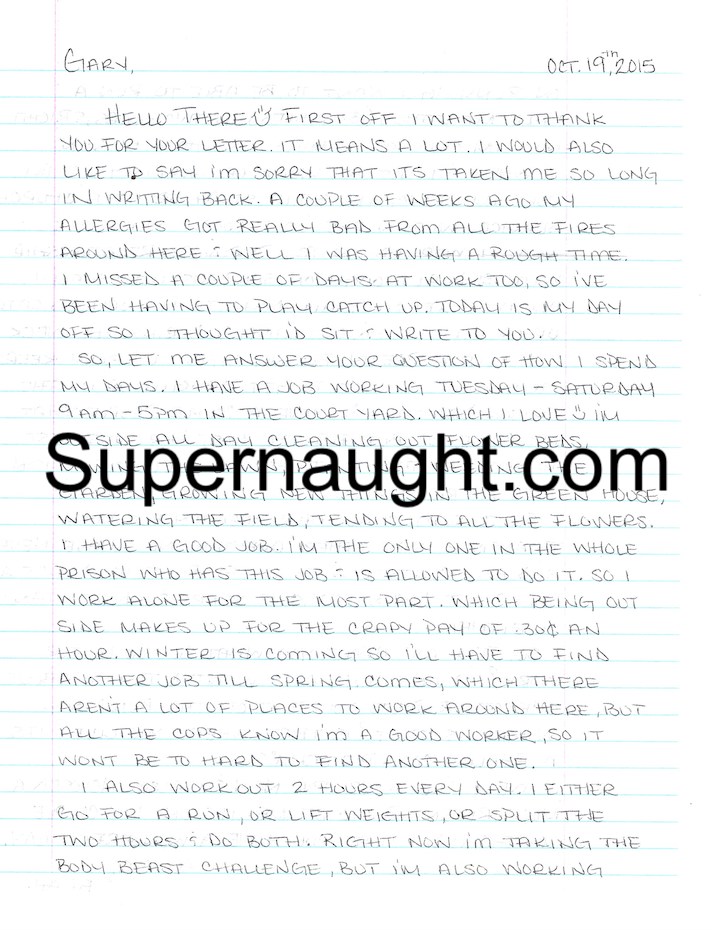 GARY,
OCT. 19th, 2015
HELLO THERE FIRST OFF I WANT TO THANK
YOU FOR YOUR LETTER. IT MEANS A LOT. I WOULD ALSO
LIKE TO SAY I'M SORRY THAT ITS TAKEN ME SO LONG
IN WRITING BACK. A COUPLE OF WEEKS AGO MY
ALLERGIES GOT REALLY BAD FROM ALL THE FIRES
AROUND HERE & WELL I WAS HAVING A ROUGH TIME.
I MISSED A COUPLE OF DAYS AT WORK TOO, SO I'VE
BEEN HAVING TO PLAY CATCH UP. TODAY IS MY DAY
OFF SO I THOUGHT I'D SIT & WRITE TO YOU.
SO, LET ME ANSWER YOUR QUESTION OF HOW I SPEND
MY DAYS. I HAVE A JOB WORKING TUESDAY - SATURDAY
9AM - 5PM IN THE COURT YARD. WHICH I LOVE I'M
OUTSIDE ALL DAY CLEANING OUT FLOWER BEDS,
Supernaught.com
MOWING THE LAWN, PLANTING & WEEDING THE
GARDEN, GROWING NEW THINGS IN THE GREEN HOUSE,
WATERING THE FIELD, TENDING TO ALL THE FLOWERS.
I HAVE A GOOD JOB. I'M THE ONLY ONE IN THE WHOLE
PRISON WHO HAS THIS JOB & IS ALLOWED TO DO IT. SO I
WORK ALONE FOR THE MOST PART. WHICH BEING OUT
SIDE MAKES UP FOR THE CRAPY PAY OF .30¢ AN
HOUR. WINTER IS COMING SO I'LL HAVE TO FIND
ANOTHER JOB TILL SPRING COMES, WHICH THERE
AREN'T A LOT OF PLACES TO WORK AROUND HERE, BUT
ALL THE COPS KNOW I'M A GOOD WORKER, SO IT
WONT BE TO HARD TO FIND ANOTHER ONE.
I ALSO WORKOUT 2 HOURS EVERY DAY. I EITHER
GO FOR A RUN, OR LIFT WEIGHTS, OR SPLIT THE
TWO HOURS & DO BOTH. RIGHT NOW I'M TAKING THE
BODY BEAST CHALLENGE, BUT I'M ALSO WORKING